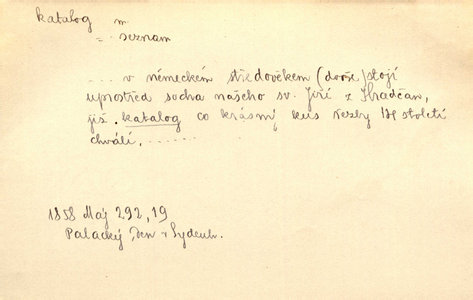 katalog m
= seznam
.... v německém středověkem (dvoře) stojí
uprostřed socha našeho sv. Jiří z Hradčan,
již . katalog co krásný kus řezby 14 století
chválí, .......
1858 Máj 292, 19
Palacký, Den v Sydenh.